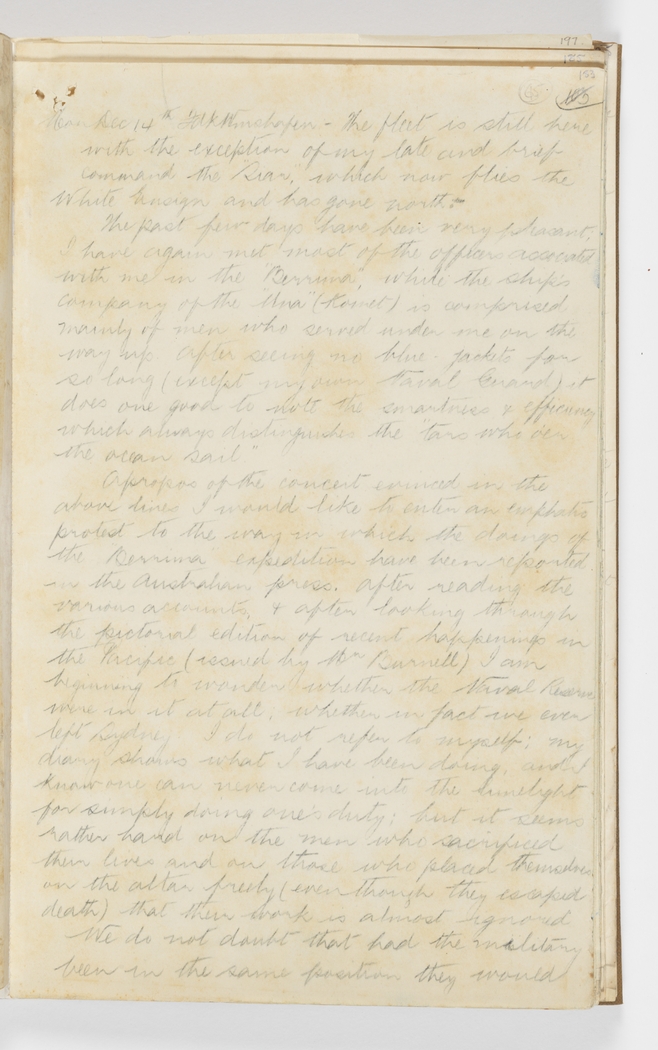 197
153
165
Mon Dec 14th Fdk Wmshafen - The fleet is still here
with the exception of my late and brief
command the "Siar", which now flies the
White Ensign and has gone north.
The past few days have been very pleasant,
I have again met most of the officers associated
with me in the "Berrima", while the ship's
company of the "Una" (Komet) is comprised
mainly of men who served under me on the
way up. After seeing no blue-jackets for
so long (except my own Naval Guard) it
does one good to note the smartness & efficiency
which always distinguishes the "tars who o'er
the ocean sail"
Apropos of the conceit evinced in the
above lines I would like to enter an emphatic
protest to the way in which the doings of
the "Berrima" expedition have been reported
in the Australian press. After reading the
various accounts, & after looking through
the pictorial edition of recent happenings in
the Pacific (issued by Mr Burnell) I am
beginning to wonder whether the Naval Reserve
were in it at all, whether in fact we ever
left Sydney. I do not refer to myself; my
diary shows what I have been doing, and I
know one can never come into the limelight
for simply doing one's duty; but it seems
rather hard on the men who sacrificed
their lives and on those who placed themselves
on the altar freely (even though they escaped
death) that their work is almost ignored
We do not doubt that had the military
been in the same position they would